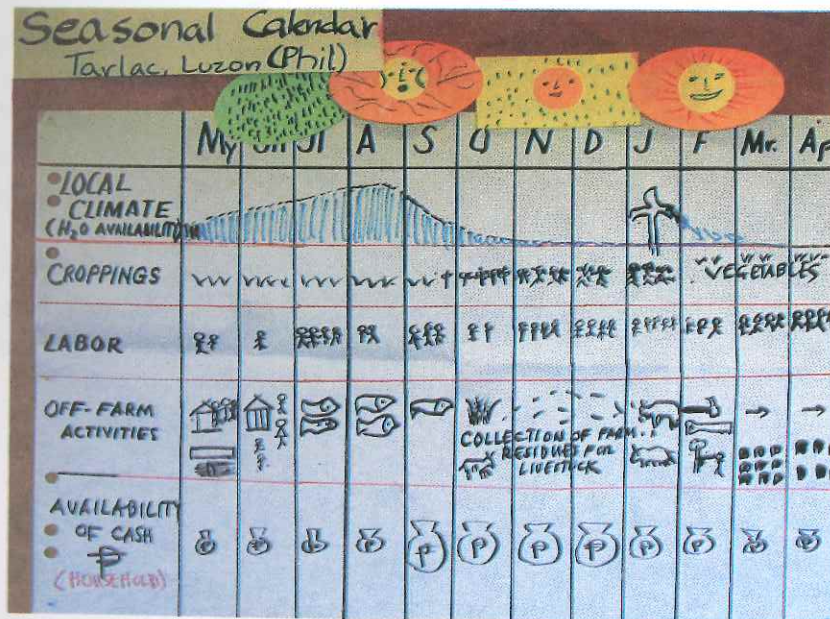 Seasonal Calendar
Tarlac, Luzon (Phil)
My Jn Jl A S O N D J F Mr. Ap
LOCAL
CLIMATE
(H₂O AVAILABILITY)
CROPPINGS
VEGETABLES
LABOR
OFF-FARM
ACTIVITIES
COLLECTION OF FARM
RESIDUES FOR
LIVESTOCK
AVAILABILITY
OF CASH
₱
(HOUSEHOLD)
P P P P P P P P P P P P